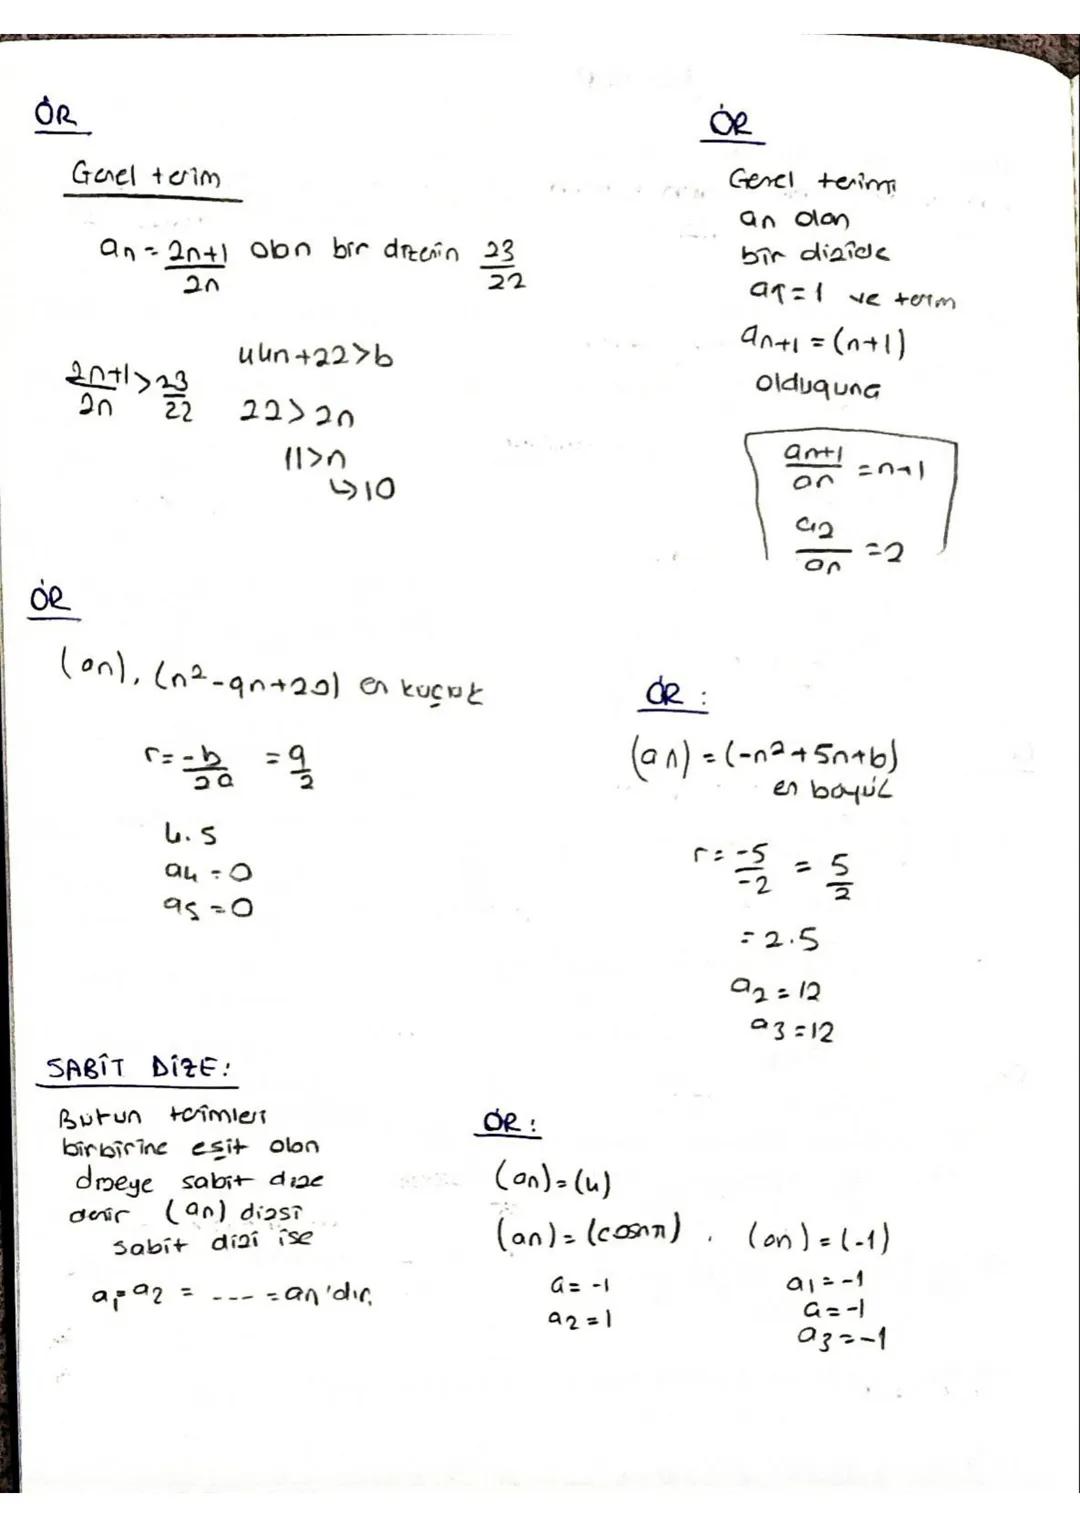 ÖR
Genel terim
an = 2n+1/2n olan bir dizenin 23/22
2n+1/2n > 23/22
44n+22>b
22>2n
11>n
↳10
ÖR
Genel terimi
an olan
bir dizide
a1=1 ve terim
an+1 = (n+1)
olduguna
an+1/an = n+1
a2/an = 2
ÖR
(an), (n²-9n+20) en kuçuk
r = -b/2a = 9/2
4.5
a4 = 0
a5 = 0
ÖR :
(an) = (-n²+5n+b)
en bayük
r = -5/-2 = 5/2
= 2.5
a2 = 12
a3 = 12
SABİT DİZE:
Butun terimleri
birbirine eşit olan
dizeye sabit dize
denir (an) dizisi
sabit dizi ise
a1=a2 = --- = an'dır.
ÖR :
(an) = (4)
(an) = (cosnπ) . (an) = (-1)
a = -1
a2 = 1
a1 = -1
a = -1
a3 = -1